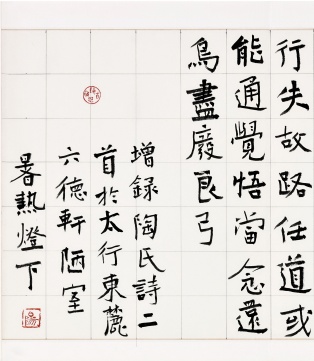 行失故路任道或
能通覺悟當念還
鳥盡廢良弓
增録陶氏詩二
首於太行東麓
六德軒陋室
暑熱燈下